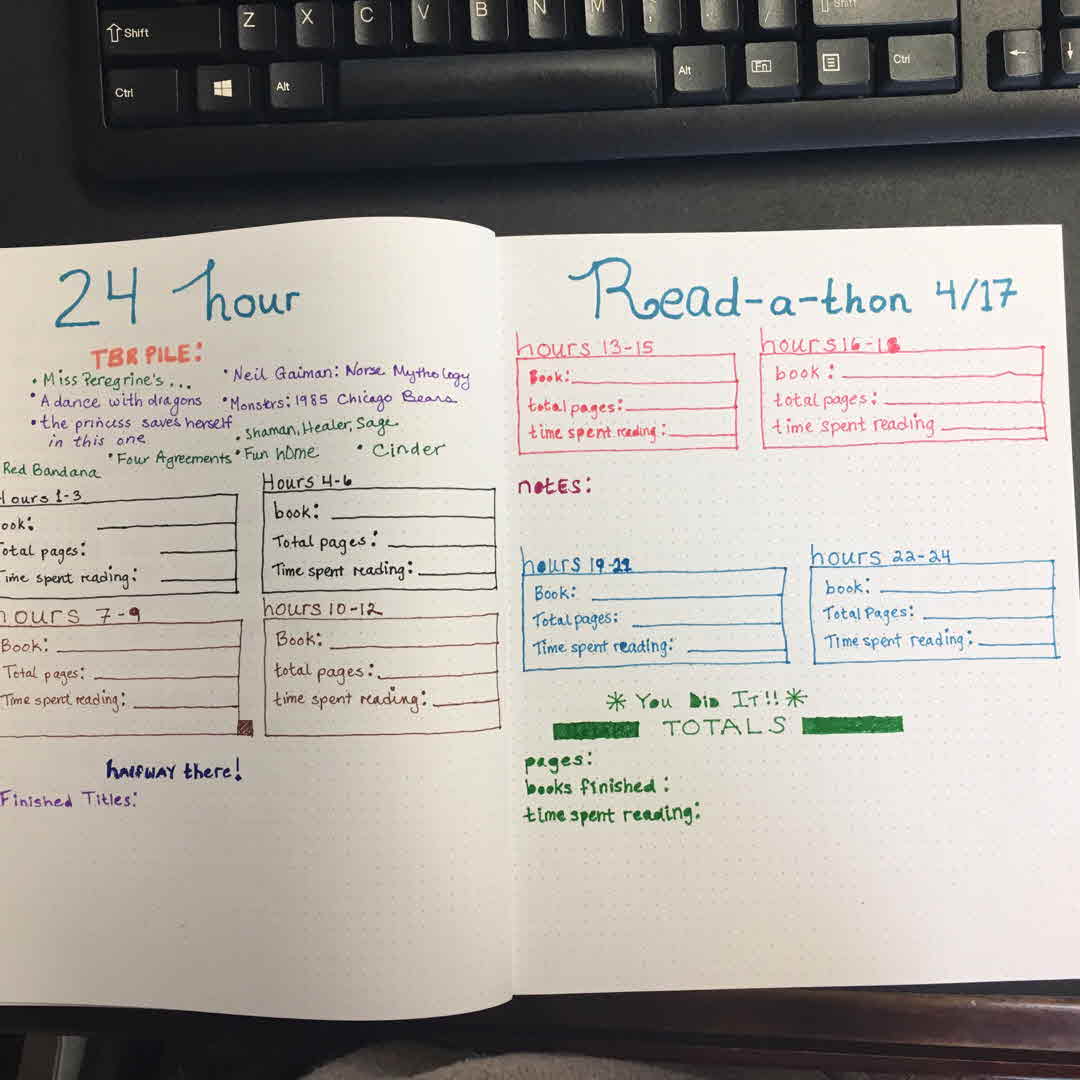 Shift Z X C V B N M ; : / Shift
Ctrl Alt Alt Fn Ctrl ← ↓
24 hour
TBR PILE:
• Miss Peregrine's...
• A dance with dragons
• the princess saves herself
in this one
• Neil Gaiman: Norse Mythology
• Monsters: 1985 Chicago Bears
• Shaman, Healer, Sage
Red Bandana
• Four Agreements
• Fun home
• Cinder
Hours 1-3
ook:
otal pages:
Time spent reading:
Hours 4-6
book:
Total pages:
Time spent reading:
hours 7-9
Book:
Total pages:
Time spent reading:
hours 10-12
Book:
total pages:
time spent reading:
HALFWAY there!
Finished Titles:
Read-a-thon 4/17
hours 13-15
Book:
total pages:
time spent reading:
hours 16-18
book:
total pages:
time spent reading
notes:
hours 19-21
Book:
Total pages:
Time spent reading:
hours 22-24
book:
Total Pages:
Time spent reading:
* You Did It!! *
TOTALS
pages:
books finished:
time spent reading: